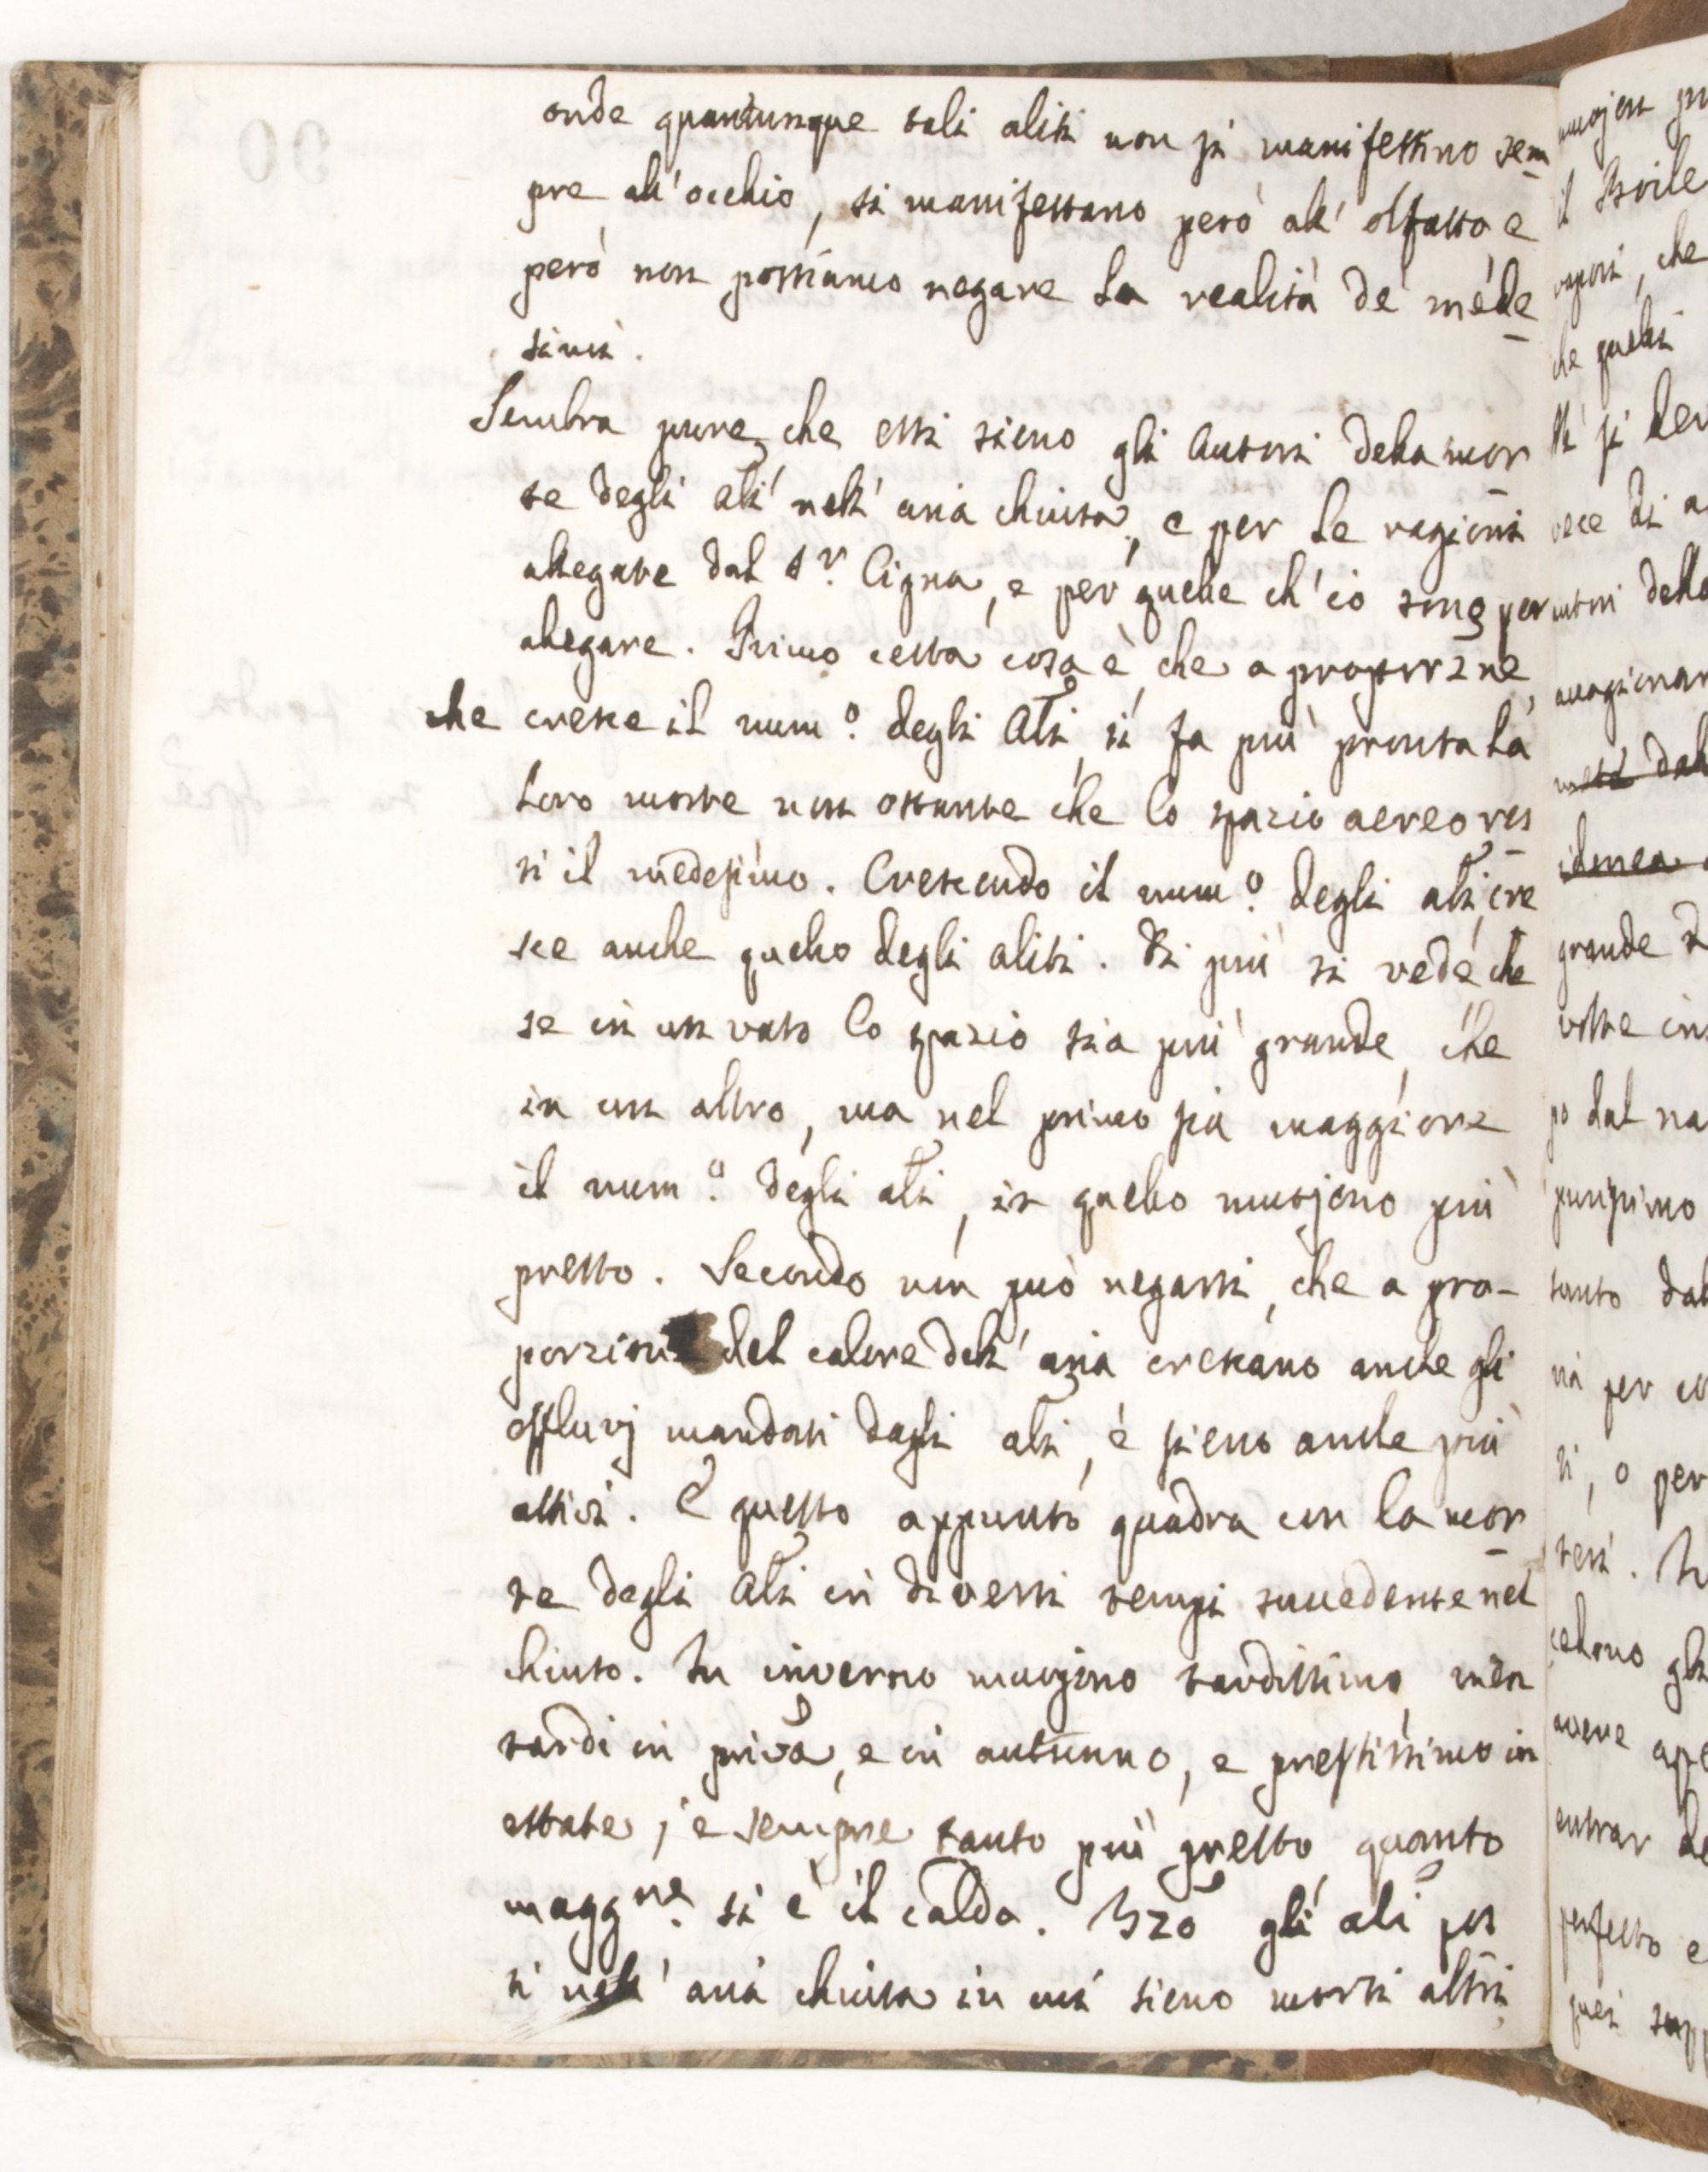 onde quantunque tali aliti non si manifestino sem
pre all'occhio, si manifestano però all'olfatto e
però non possiamo negare la realità de' mede
simi.
Sembra pure che essi sieno gli Autori della mor
te degli ali nell'aria chiusa, e per le ragioni
allegate dal Sr. Cigna, e per quelle ch'io sono per
allegare. Primo certa cosa è, che a proporzne,
che cresce il num.o degli Ali, si fa più pronta la
loro morte non ostante che lo spazio aereo res
ti il medesimo. Crescendo il num.o degli ali, cre
sce anche quello degli aliti. Di più si vede che
se in un vaso lo spazio sia più grande, che
in un altro, ma nel primo sia maggiore
il num.o degli ali, in quello muojono più
presto. Secondo non può negarsi, che a pro-
porzione del calore dell'aria crescano anche gli
effluvj mandati dagli ali, e sieno anche più
attivi. E questo appunto quadra con la mor
te degli Ali in diversi tempi succedente nel
chiuso. In inverno muojono tardissimo, men
tardi in priva, e in autunno, e prestissimo in
estate, e sempre tanto più presto, quanto
maggre. si è il caldo. 3zo gli ali pos
ti nell'aria chiusa in cui sieno morti altri
90